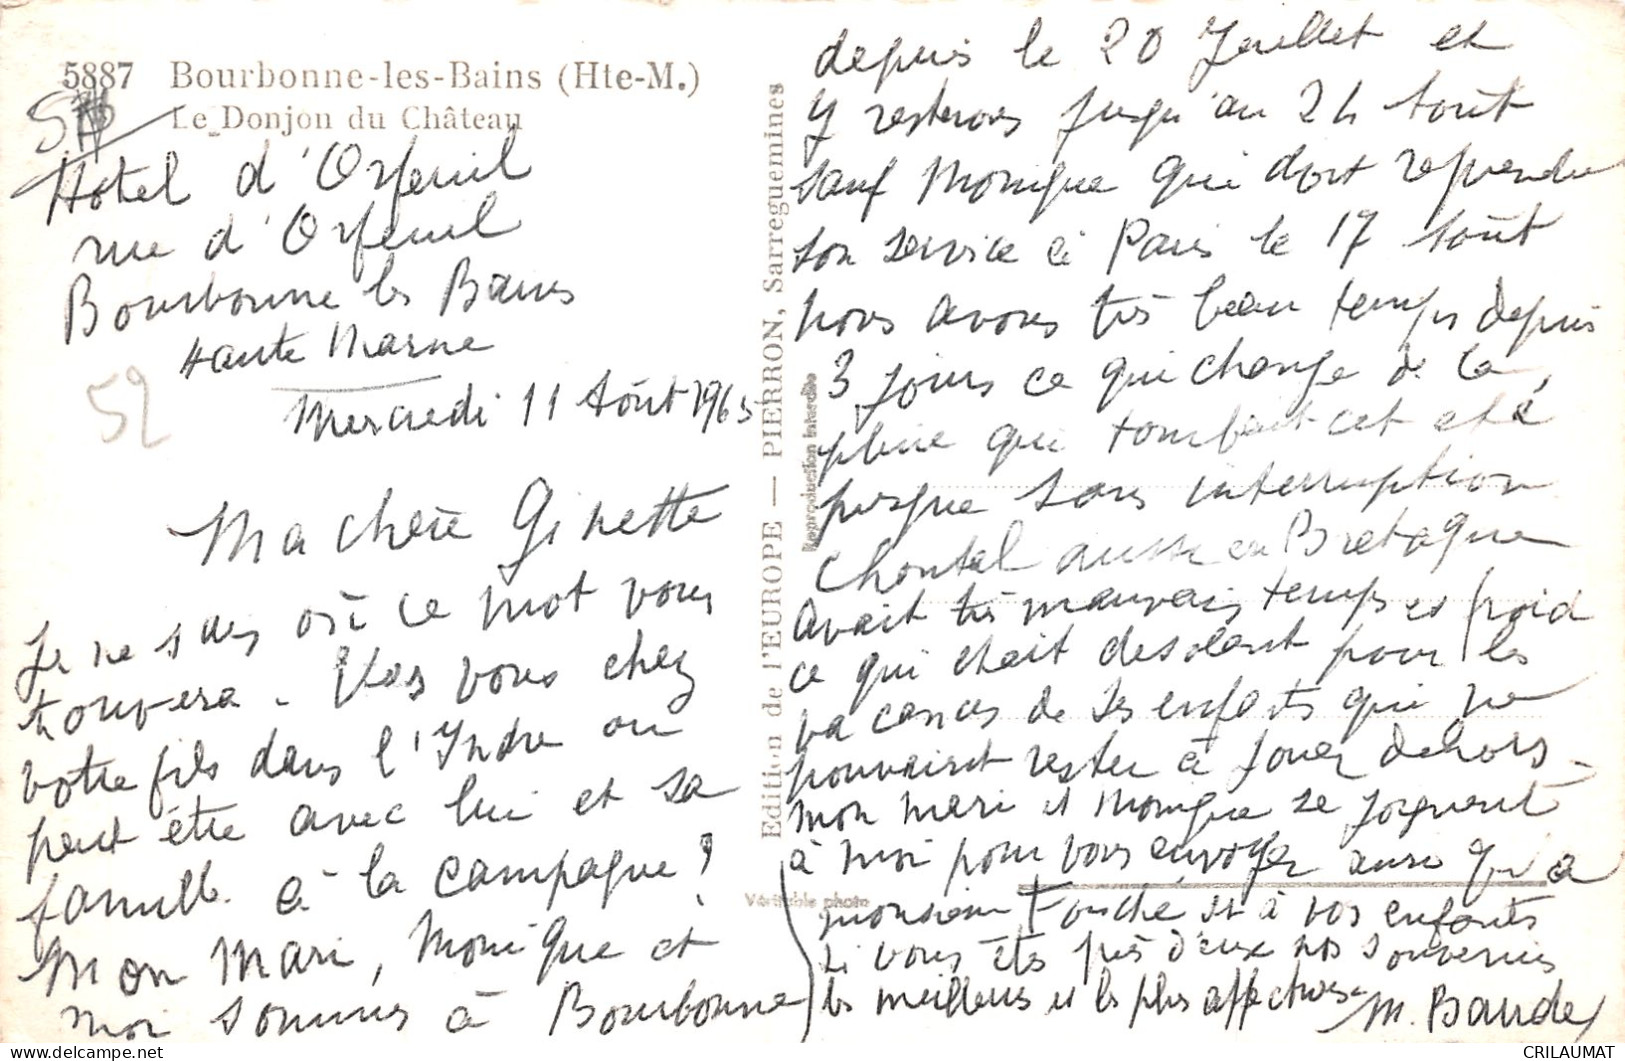 5887 Bourbonne-les-Bains (Hte-M.)
Le Donjon du Château
Hôtel d'Orfeuil
rue d'Orfeuil
Bourbonne les Bains
Haute Marne
52
Mercredi 11 Août 1965
Ma chère Ginette
Je ne sais où ce mot vous
trouvera - êtes vous chez
votre fils dans l'Indre ou
peut être avec lui et sa
famille à la campagne?
Mon Mari, Monique et
moi sommes à Bourbonne
depuis le 20 Juillet et
y resterons jusqu'au 24 Août
sauf Monique qui doit reprendre
son service à Paris le 17 Août
nous avons très beau temps depuis
3 jours ce qui change de la
pluie qui tombait cet été
presque sans interruption
Chantal aussi en Bretagne
avait très mauvais temps et froid
ce qui était desolant pour les
vacances de ses enfants qui ne
pouvaient rester à jouer dehors -
mon mari et Monique se joignent
à moi pour vous envoyer ainsi qu'à
monsieur Fouché et à vos enfants
si vous êtes près d'eux nos souvenirs
les meilleurs et les plus affectueux
M. Baudey
Edition de l'EUROPE — PIERRON, Sarreguemines
Reproduction Interdite
Véritable photo
CRILAUMAT